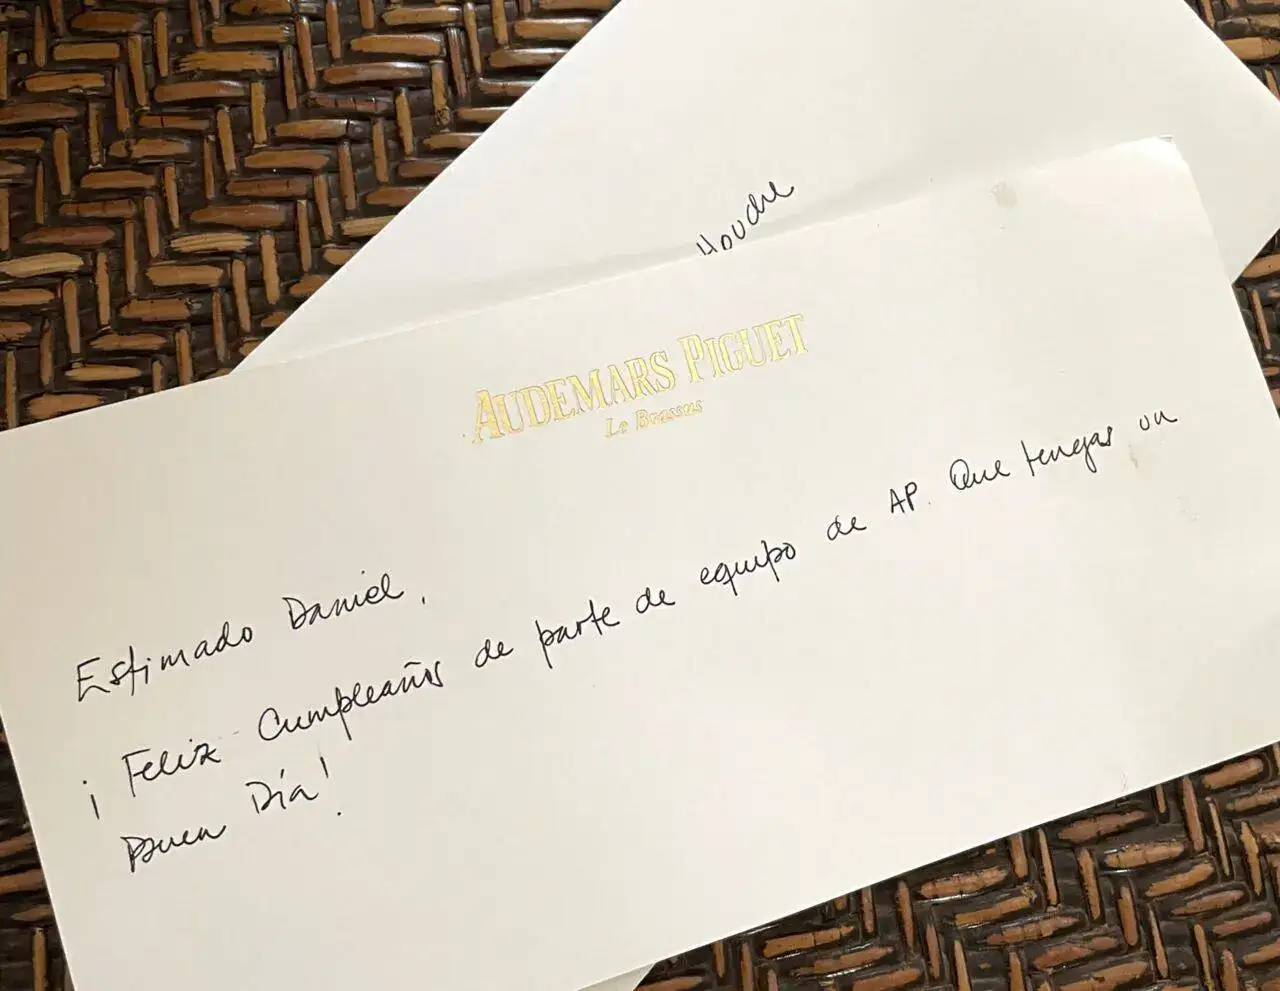 Houdre
AUDEMARS PIGUET
Le Brassus
Estimado Daniel,
¡Feliz Cumpleaños de parte de equipo de AP. Que tengas un
Buen Día!